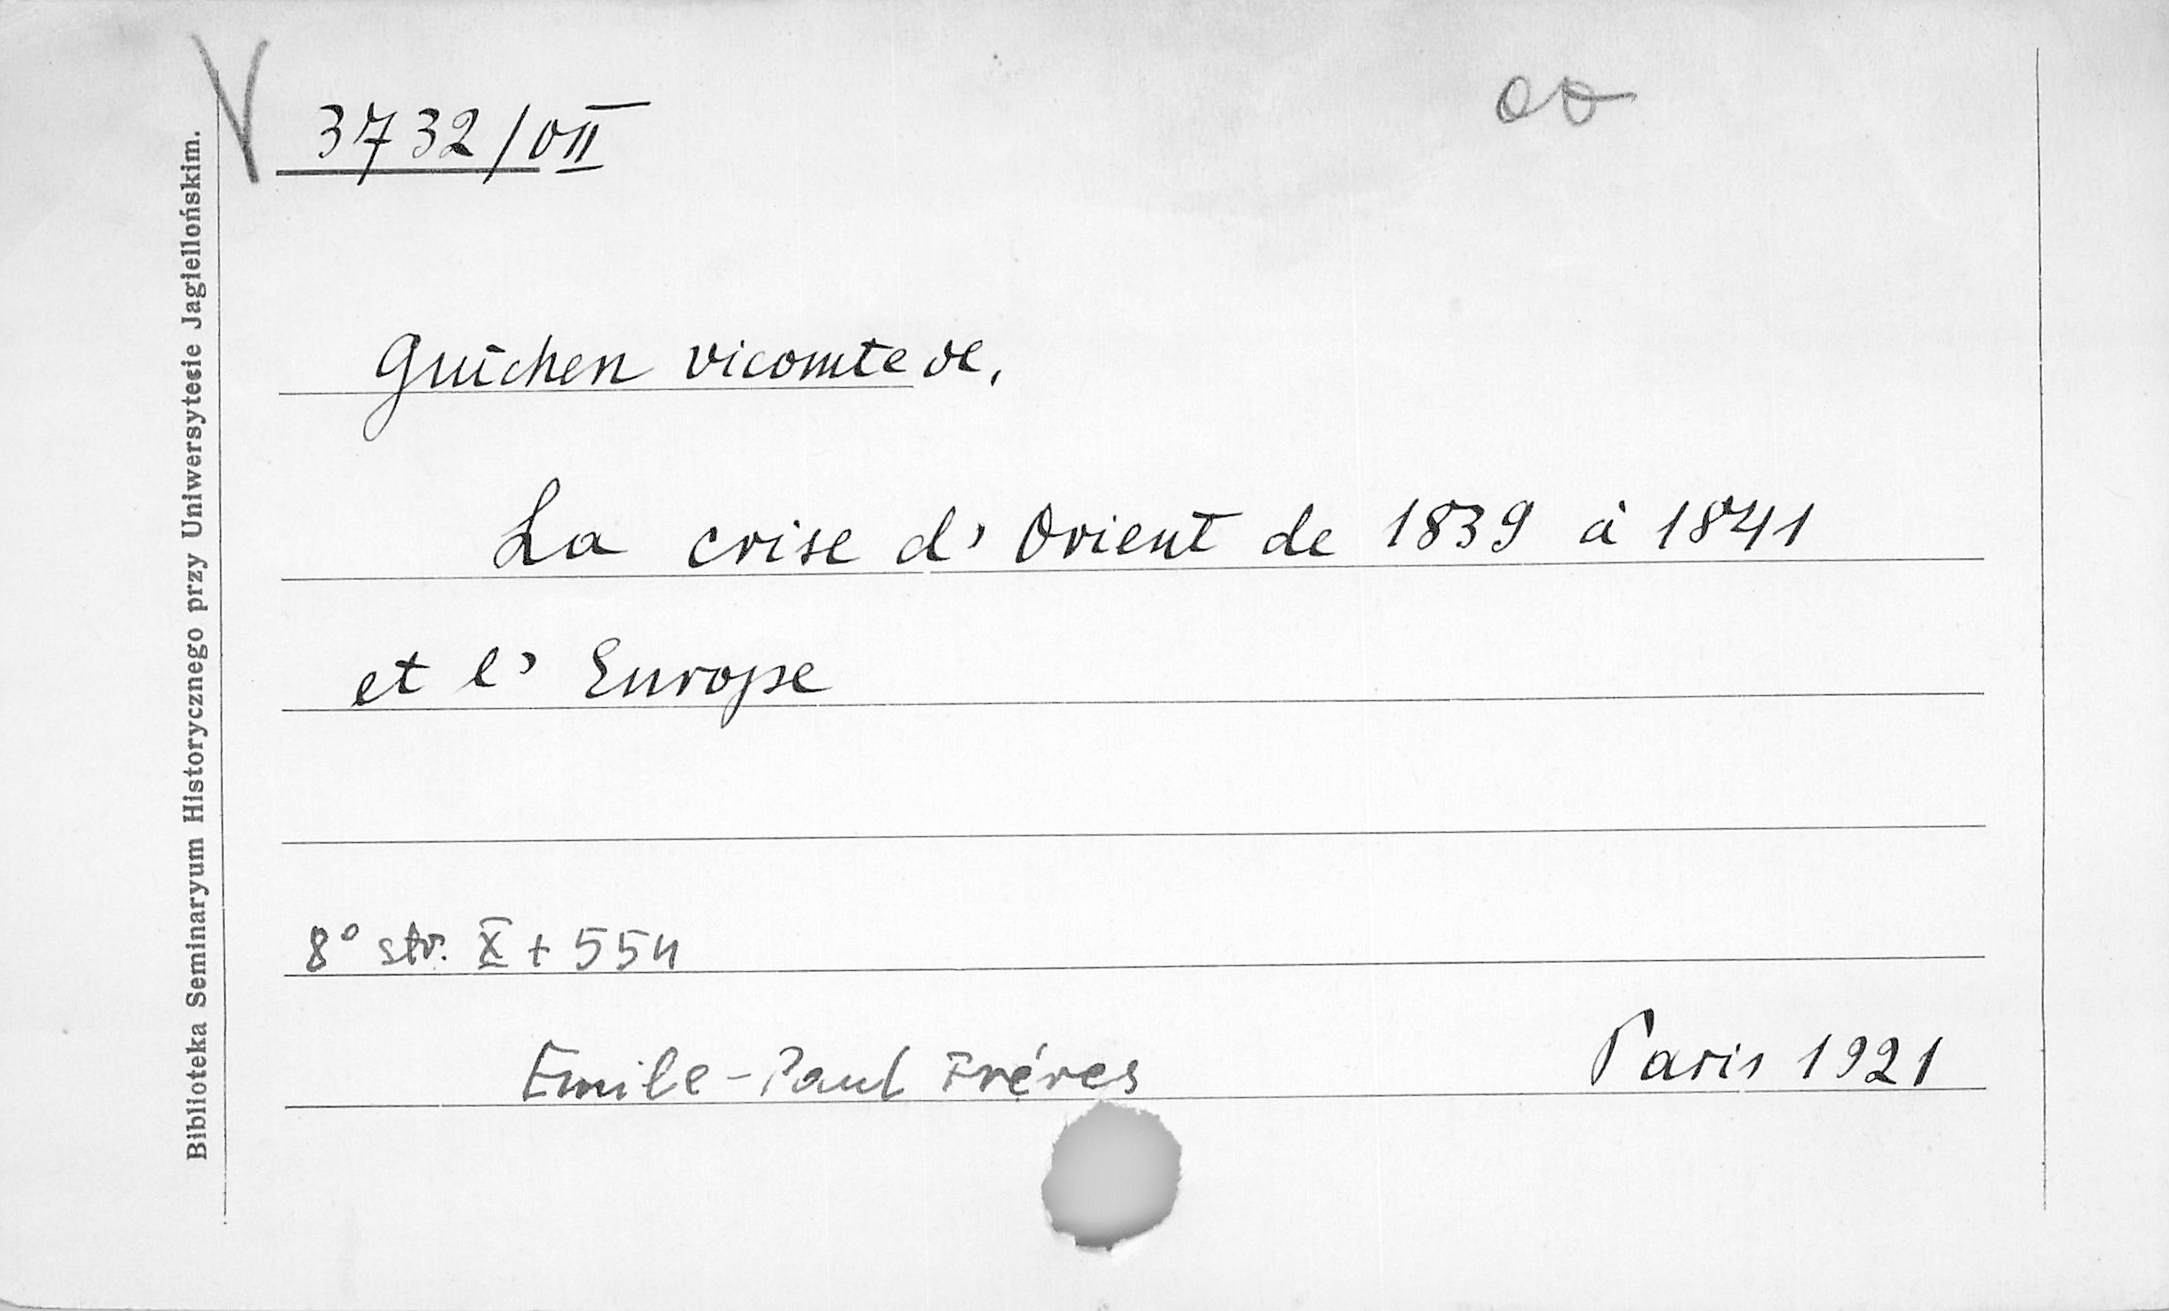 V 3732/OII
oo
Guichen vicomte de,
La crise d'Orient de 1839 à 1841
et l'Europe
8° str. X + 554
Emile-Paul Fréres
Paris 1921
Biblioteka Seminaryum Historycznego przy Uniwersytesie Jagiellońskim.